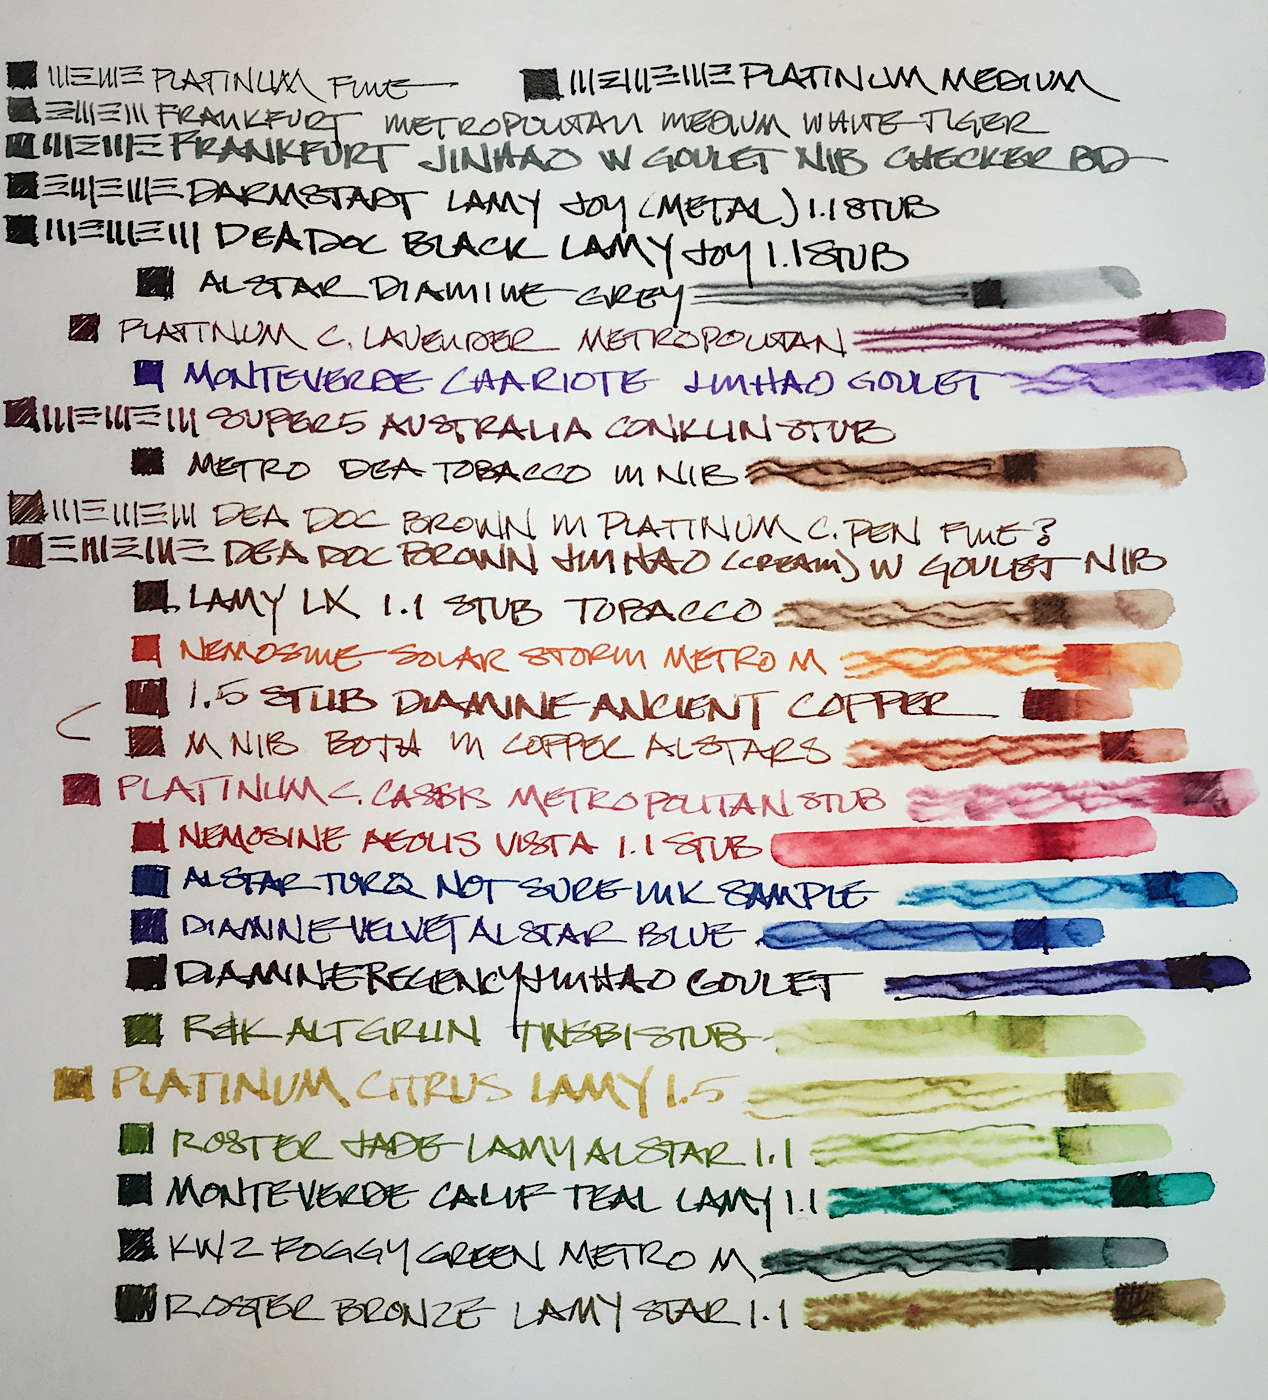 PLATINUM FINE PLATINUM MEDIUM
FRANKFURT METROPOLITAN MEDIUM WHITE TIGER
FRANKFURT JINHAO W GOULET NIB CHECKER BD
DARMSTADT LAMY JOY (METAL) 1.1 STUB
DEADOC BLACK LAMY JOY 1.1 STUB
ALSTAR DIAMINE GREY
PLATINUM C. LAVENDER METROPOLITAN
MONTEVERDE CHARIOTE JINHAO GOULET
SUPER5 AUSTRALIA CONKLIN STUB
METRO DEA TOBACCO M NIB
DEA DOC BROWN IN PLATINUM C. PEN FINE?
DEA DOC BROWN JINHAO (CREAM) W GOULET NIB
LAMY LX 1.1 STUB TOBACCO
NEMOSINE SOLAR STORM METRO M
1.5 STUB DIAMINE ANCIENT COPPER
M NIB BOTH IN COPPER ALSTARS
PLATINUM C. CASSIS METROPOLITAN STUB
NEMOSINE AEOLIS VISTA 1.1 STUB
ALSTAR TURQ NOT SURE INK SAMPLE
DIAMINE VELVET ALSTAR BLUE
DIAMINE REGENCY JINHAO GOULET
R&K ALT GRUN TWSBI STUB
PLATINUM CITRUS LAMY 1.5
ROSTER JADE LAMY ALSTAR 1.1
MONTEVERDE CALIF TEAL LAMY 1.1
KWZ FOGGY GREEN METRO M
ROSTER BRONZE LAMY STAR 1.1